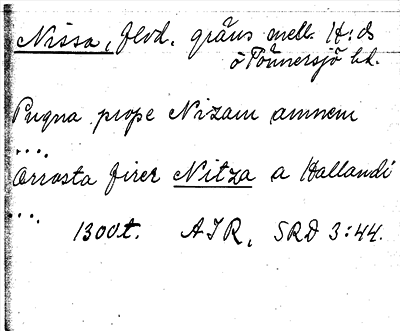 Nissa, flod, gräns mell. H:ds
o Tönnersjö hd.
Pugna prope Nizam amnem
....
Orrosta firer Nitza a Hallandi
....
1300t. AJR, SRD 3:44.